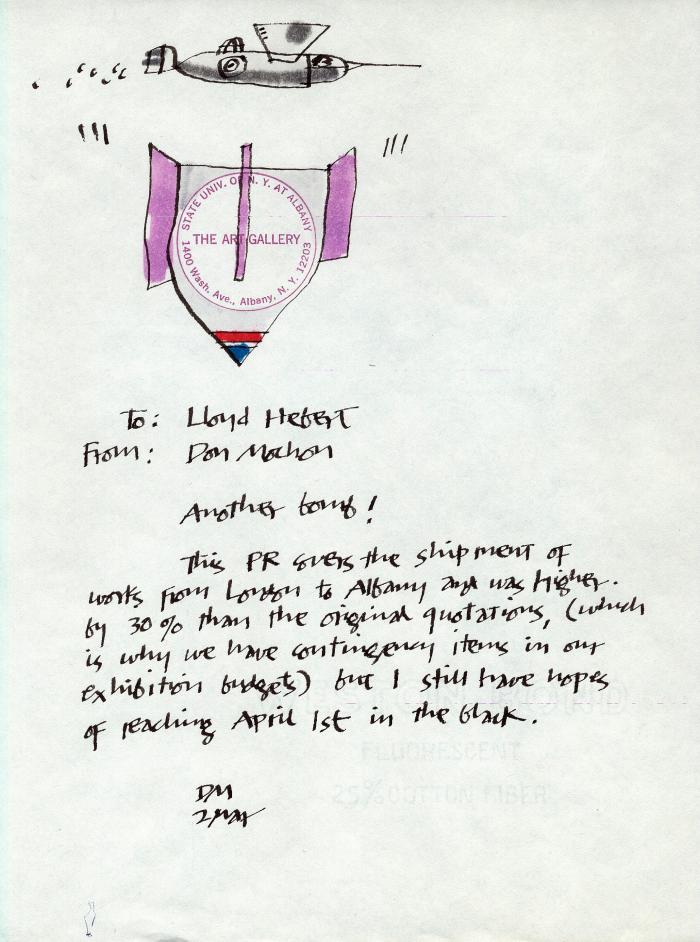 STATE UNIV. OF N. Y. AT ALBANY
THE ART GALLERY
1400 Wash. Ave., Albany, N. Y. 12203
To: Lloyd Hebert
From: Don Mochon
Another bomb!
This PR covers the shipment of
works from London to Albany and was higher.
by 30% than the original quotations, (which
is why we have contingency items in our
exhibition budgets) but I still have hopes
of reaching April 1st in the black.
DM
2 Mar
WESTON BOND
FLUORESCENT
25% COTTON FIBER